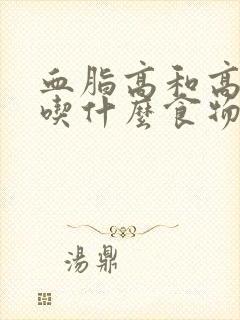 血脂高和高
喫什麼食物
湯鼎